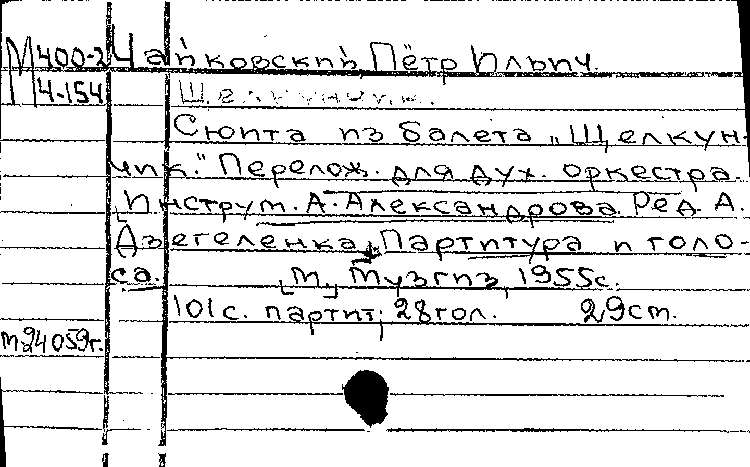 М400-2 Чайковский, Пётр Ильич.
М4-154 Щелкунчик.
Сюита из балета „Щелкун-
чик." Перелож. для дух. оркестра.
Инструм. А. Александрова. Ред. А.
Дзегеленка. Партитура и голо-
са. [М.], Музгиз, 1955г.
101с. партит; 28гол. 29см.
т94059г.